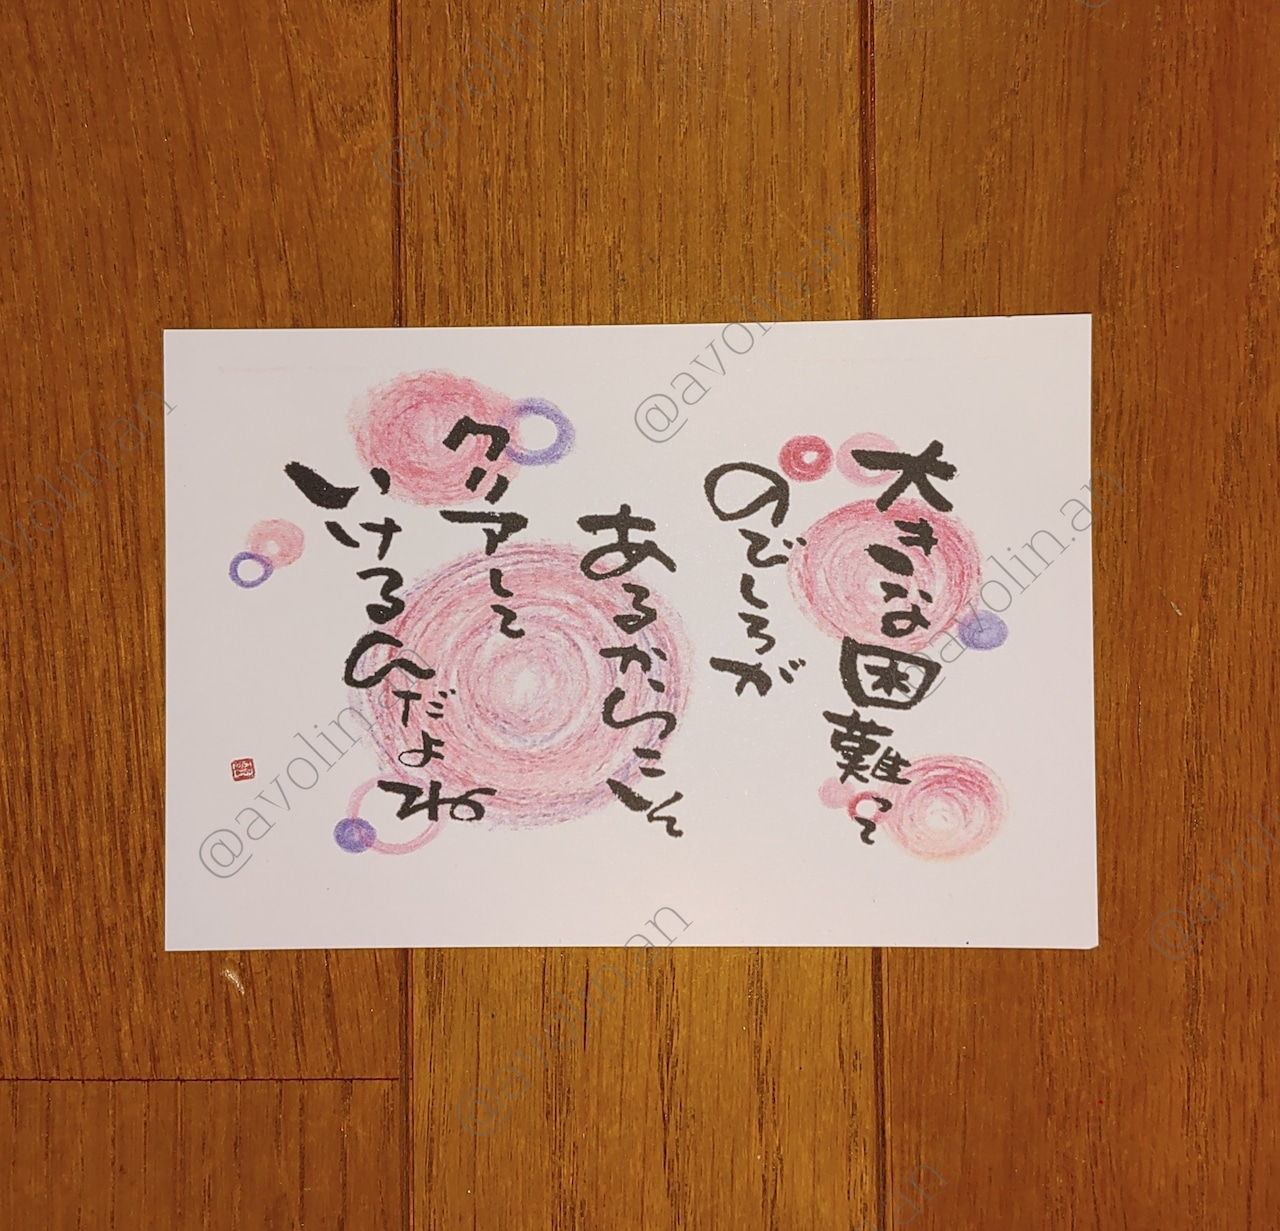 大きな困難って
のびしろが
あるからこそ
クリアして
いけるのだよね
@avolin.an
@avolin.an
@avolin.an
@avolin.an
@avolin.an
@avolin.an